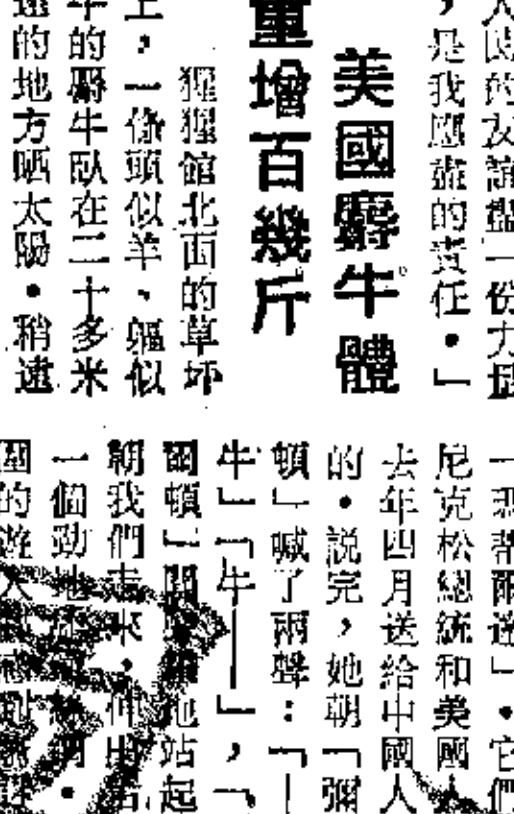 人民的友誼盡一份力量
，是我應盡的責任。」
美國麝牛體
重增百幾斤
猩猩館北面的草坪
上，一條頭似羊、軀似
牛的麝牛臥在二十多米
遠的地方晒太陽。稍遠
「瑪蒂爾達」。它們
尼克松總統和美國人
去年四月送給中國人
的。説完，她朝「彌爾
頓」喊了兩聲：「—
牛」「牛——」，「
爾頓」 地站起
朝我們走來。伸出舌
一個勁地
圍的遊人